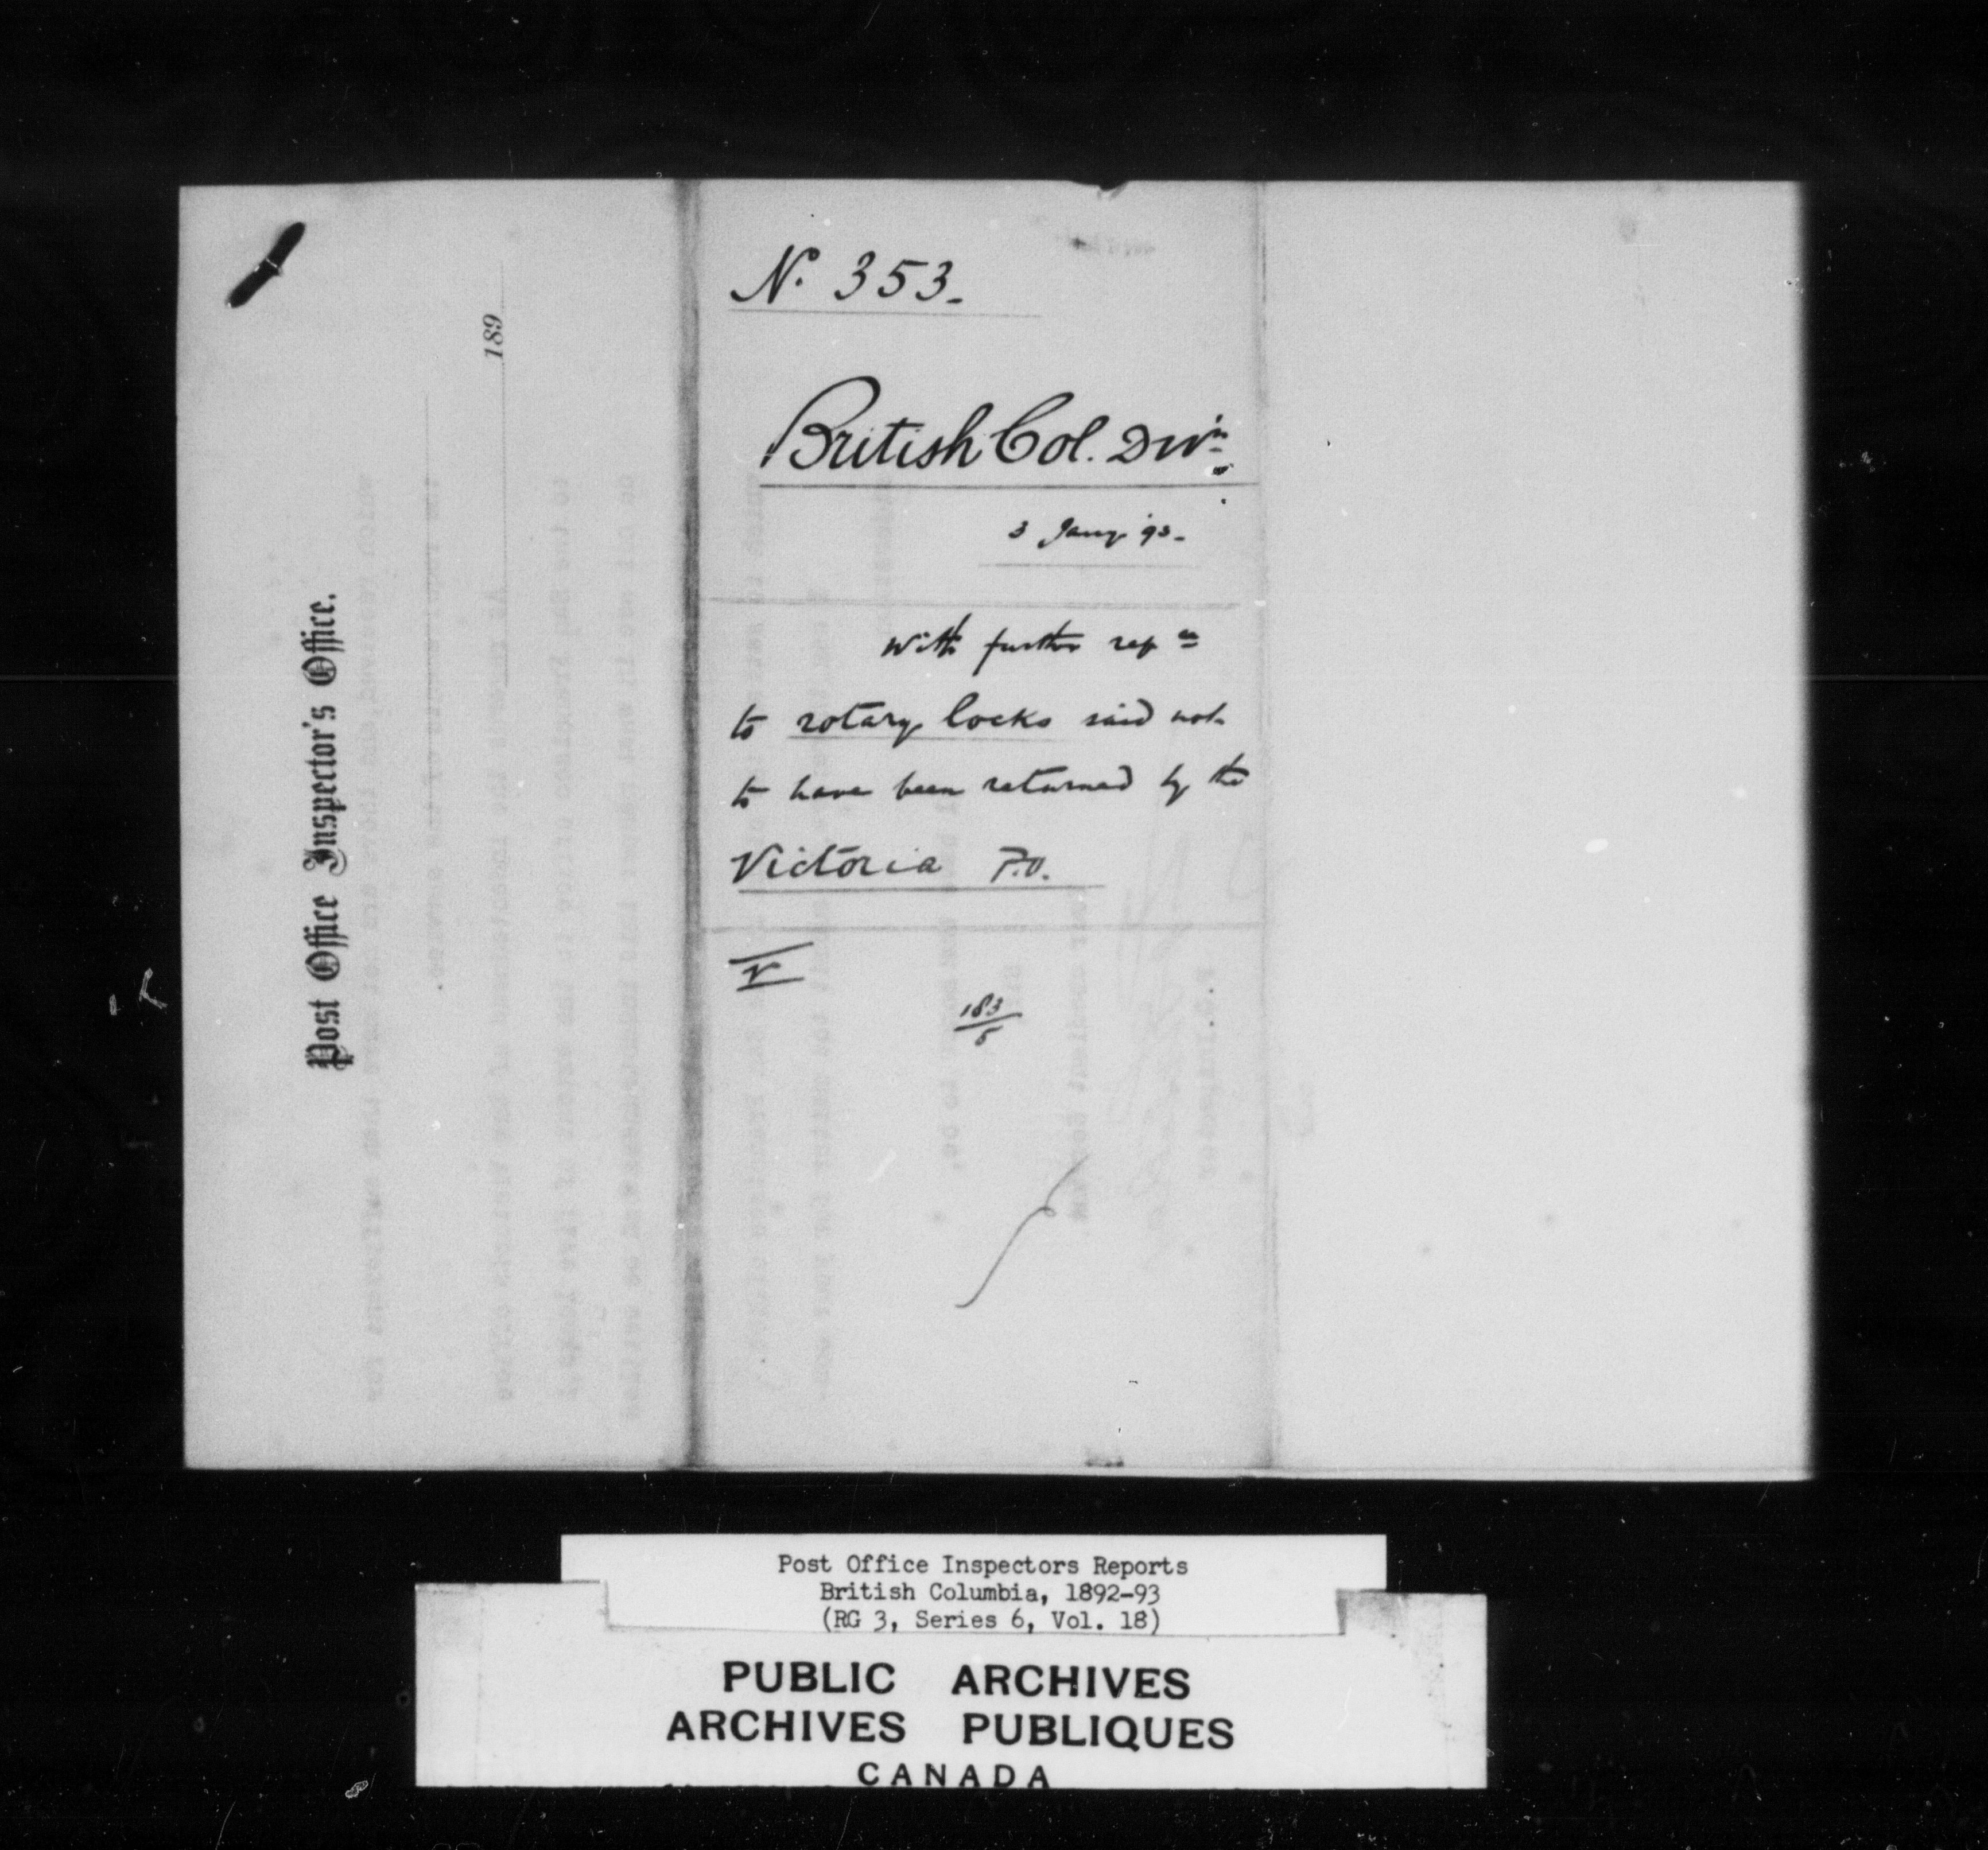 Post Office Inspector's Office.
189
No. 353.
British Col. Divn.
3 Jany '93.
With further refce
to rotary locks said not
to have been returned by the
Victoria P.O.
183/5
Post Office Inspectors Reports
British Columbia, 1892-93
(RG 3, Series 6, Vol. 18)
PUBLIC ARCHIVES
ARCHIVES PUBLIQUES
CANADA